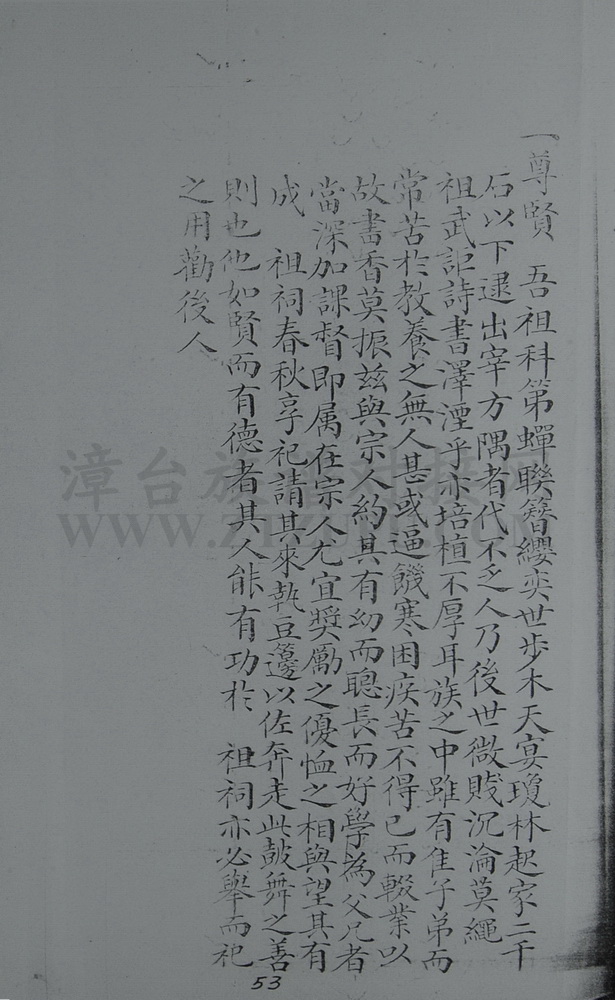 一尊賢　吾祖科第蟬聯簪纓奕世步木天宴瓊林起家二千
石以下逮出宰方隅者代不乏人乃後世微賤沉淪莫繩
祖武詎詩書澤湮乎亦培植不厚耳族之中雖有隹子弟而
常苦於教養之無人甚或逼饑寒困疾苦不得已而輟業以
故書香莫振茲與宗人約其有幼而聰長而好學為父兄者
當深加課督即属在宗人尤宜獎勵之優恤之相與望其有
成　祖祠春秋享祀請其來執豆籩以佐奔走此鼓舞之善
則也他如賢而有德者其人能有功於　祖祠亦必舉而祀
之用勸後人
53
漳台族
www.z